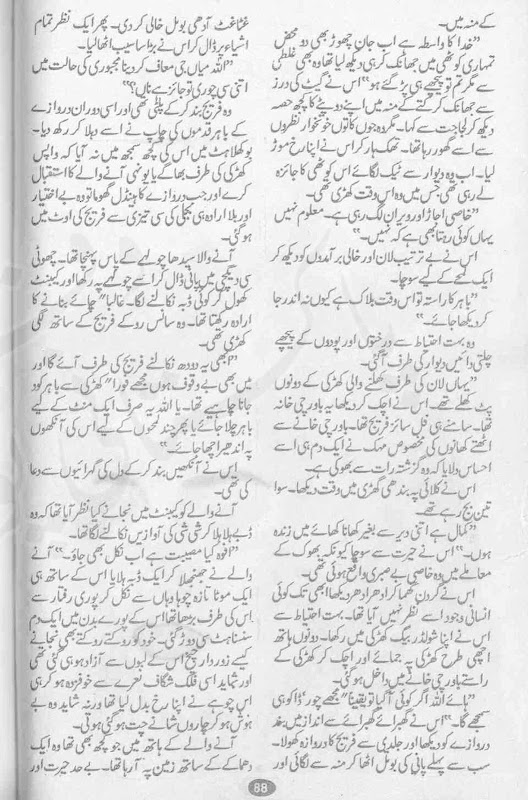 کے منہ میں۔
”خدا کا واسطہ ہے اب جان چھوڑ بھی دو محض
تمہاری کوٹھی میں جھانک کر ہی دیکھ لیا تھا وہ بھی غلطی
سے مگر تم تو پیچھے ہی پڑ گئے ہو“ اس نے گیٹ کی درز
سے جھانک کر کتے کے منہ میں اپنے دوپٹے کا کچھ حصہ
دیکھ کر لجاجت سے کہا۔ مگر وہ جوں کا توں خونخوار نظروں
سے اسے گھور رہا تھا۔ تھک ہار کر اس نے اپنا رخ موڑ
لیا۔ اب وہ دیوار سے ٹیک لگائے اس کوٹھی کا جائزہ
لے رہی تھی، جس میں وہ اس وقت کھڑی تھی۔
”خاصی اجاڑ اور ویران لگ رہی ہے۔ معلوم نہیں
یہاں کوئی رہتا بھی ہے کہ نہیں۔“
اس نے بے ترتیب لان اور خالی برآمدوں کو دیکھ کر
ایک لمحے کے لیے سوچا۔
”باہر کا راستہ تو اس وقت بلاک ہے کیوں نہ اندر جا
کر دیکھا جائے۔“
وہ بہت احتیاط سے درختوں اور پودوں کے پیچھے
چلتی دائیں دیوار کی طرف آ گئی۔
”یہاں لان کی طرف کھلنے والی کھڑکی کے دونوں
پٹ کھلے تھے۔ اس نے اچک کر دیکھا یہ باورچی خانہ
تھا۔ سامنے ہی فل سائز فریج تھا۔ باورچی خانے سے
اٹھتے کھانوں کی مخصوص مہک نے ایک دم ہی اسے
احساس دلایا کہ وہ گزشتہ رات سے بھوکی ہے۔
اس نے کلائی پہ بندھی گھڑی میں وقت دیکھا۔ سوا
تین بج رہے تھے۔
”کمال ہے اتنی دیر سے بغیر کھانا کھائے میں زندہ
ہوں۔“ اس نے حیرت سے سوچا کیونکہ بھوک کے
معاملے میں وہ خاصی بے صبری واقع ہوئی تھی۔
اس نے گردن گھما کر ادھر ادھر دیکھا ابھی تک کوئی
انسانی وجود اسے نظر نہیں آیا تھا۔ بہت احتیاط سے
اس نے اپنا شولڈر بیگ کھڑکی میں رکھا۔ دونوں ہاتھ
اچھی طرح کھڑکی پہ جمائے اور اچک کر کھڑکی کے
راستے باورچی خانے میں داخل ہو گئی۔
”ہائے اللہ اگر کوئی آ گیا تو یقیناً مجھے چور‘ ڈاکو ہی
سمجھے گا۔“ اس نے گھبرائے گھبرائے سے انداز میں بند
دروازے کو دیکھا اور جلدی سے فریج کا دروازہ کھولا۔
سب سے پہلے پانی کی بوتل اٹھا کر منہ سے لگائی اور
غٹاغٹ آدھی بوتل خالی کر دی۔ پھر ایک نظر تمام
اشیا پر ڈال کر اس نے بڑا سا سیب اٹھا لیا۔
”اللہ میاں جی معاف کر دینا مجبوری کی حالت میں
اتنی سی چوری تو جائز ہے ناں؟“
وہ فریج بند کر کے پلٹی تھی اور اسی دوران دروازے
کے باہر قدموں کی چاپ نے اسے دہلا کر رکھ دیا۔
بوکھلاہٹ میں اس کی کچھ سمجھ میں نہ آیا کہ واپس
کھڑکی کی طرف بھاگے یا یونہی آنے والے کا استقبال
کرے اور جب دروازے کا ہینڈل گھوما تو وہ بے اختیار
اور بلا ارادہ ہی بجلی کی سی تیزی سے فریج کی اوٹ میں
ہو گئی۔
آنے والا سیدھا چولہے کے پاس پہنچا تھا۔ چھوٹی
سی دیگچی میں پانی ڈال کر اسے چولہے پہ رکھا اور کیبنٹ
کھول کر کوئی ڈبہ نکالنے لگا۔ غالباً ”چائے بنانے کا
ارادہ رکھتا تھا۔ وہ سانس روکے فریج کے ساتھ لگی
کھڑی تھی۔
”ابھی یہ دودھ نکالنے فریج کی طرف آئے گا اور
میں بھی بے وقوف ہوں مجھے فوراً ”کھڑکی سے باہر کود
جانا چاہیے تھا۔ یا اللہ یہ صرف ایک منٹ کے لیے
باہر چلا جائے یا پھر چند لمحوں کے لیے اس کی آنکھوں
پہ اندھیرا چھا جائے۔“
اس نے آنکھیں بند کر کے دل کی گہرائیوں سے دعا
کی تھی۔
آنے والے کو کیبنٹ میں نجانے کیا نظر آیا تھا کہ وہ
ڈبے ہلا ہلا کر شی شی کی آوازیں نکالنے لگا تھا۔
”افوہ کیا مصیبت ہے اب نکل بھی جاؤ۔“ آنے
والے نے جھنجھلا کر ایک ڈبہ ہلایا اس کے ساتھ ہی
ایک موٹا تازہ چوہا وہاں سے نکل کر پوری رفتار سے
اس کی طرف بڑھا تھا اس کے پورے بدن میں ایک دم
سنسناہٹ سی دوڑ گئی۔ خود کو روکتے روکتے بھی نجانے
کیسے زوردار چیخ اس کے لبوں سے آزاد ہو ہی گئی تھی
اور شاید اسی فلک شگاف نعرے سے خوفزدہ ہو کر ہی
اس چوہے نے اپنا رخ بدل لیا تھا ورنہ شاید وہ بے
ہوش ہو کر چاروں شانے چت ہو گئی ہوتی۔
آنے والے کے ہاتھ میں جو کچھ بھی تھا وہ ایک
دھماکے کے ساتھ زمین پہ آ رہا تھا۔ بے حد حیرت اور
88